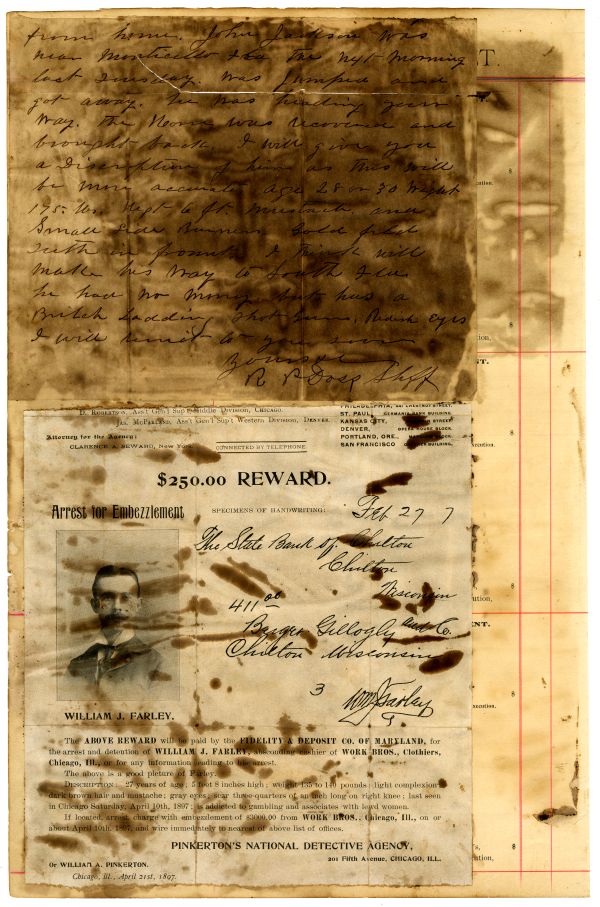 from home. John Jackson was
near Monticello Fla the next morning
last Tuesday. was Jumped and
got away. he was heading your
way. the Horse was recovered and
brought back. I will give you
a Discription of him as this will
be more accurate age 28 or 30 Wight
175 lbs. Hight 6 ft. mustach and
Small Side Burns Gold filed
Teeth in frount I think will
Make his way to South Fla
he had no money but has a
Britch Lodding Shot Gun, Redish Eyes
I will
Yours &c
R P Shff
T.
D. Robertson, Ass't Gen'l Sup't Middle Division, Chicago.
Jas. McParland, Ass't Gen'l Sup't Western Division, Denver.
Attorney for the Agency:
CLARENCE A. SEWARD, New York.
CONNECTED BY TELEPHONE
PHILADELPHIA, CHESTNUT STREET.
ST. PAUL, GERMANIA BANK BUILDING.
KANSAS CITY, STREET.
DENVER, OPERA HOUSE BLOCK.
PORTLAND, ORE., BLOCK.
SAN FRANCISCO BUILDING.
$250.00 REWARD.
Arrest for Embezzlement
SPECIMENS OF HANDWRITING:
Feb 27 7
The State Bank of Chilton
Chilton
Wisconsin
411 00
Gillogly and Co.
Chilton Wisconsin
3
Wm J Farley
WILLIAM J. FARLEY.
The ABOVE REWARD will be paid by the FIDELITY & DEPOSIT CO. OF MARYLAND, for
the arrest and detention of WILLIAM J. FARLEY, absconding cashier of WORK BROS., Clothiers,
Chicago, Ill., or for any information leading to his arrest.
The above is a good picture of Farley.
DESCRIPTION: 27 years of age; 5 feet 8 inches high; weight 135 to 140 pounds; light complexion;
dark brown hair and mustache; gray eyes; scar three-quarters of an inch long on right knee; last seen
in Chicago Saturday, April 10th, 1897; is addicted to gambling and associates with lewd women.
If located, arrest, charge with embezzlement of $3000.00 from WORK BROS., Chicago, Ill., on or
about April 10th, 1897, and wire immediately to nearest of above list of offices.
PINKERTON'S NATIONAL DETECTIVE AGENCY,
201 Fifth Avenue, CHICAGO, ILL.
Or WILLIAM A. PINKERTON.
Chicago, Ill., April 21st, 1897.